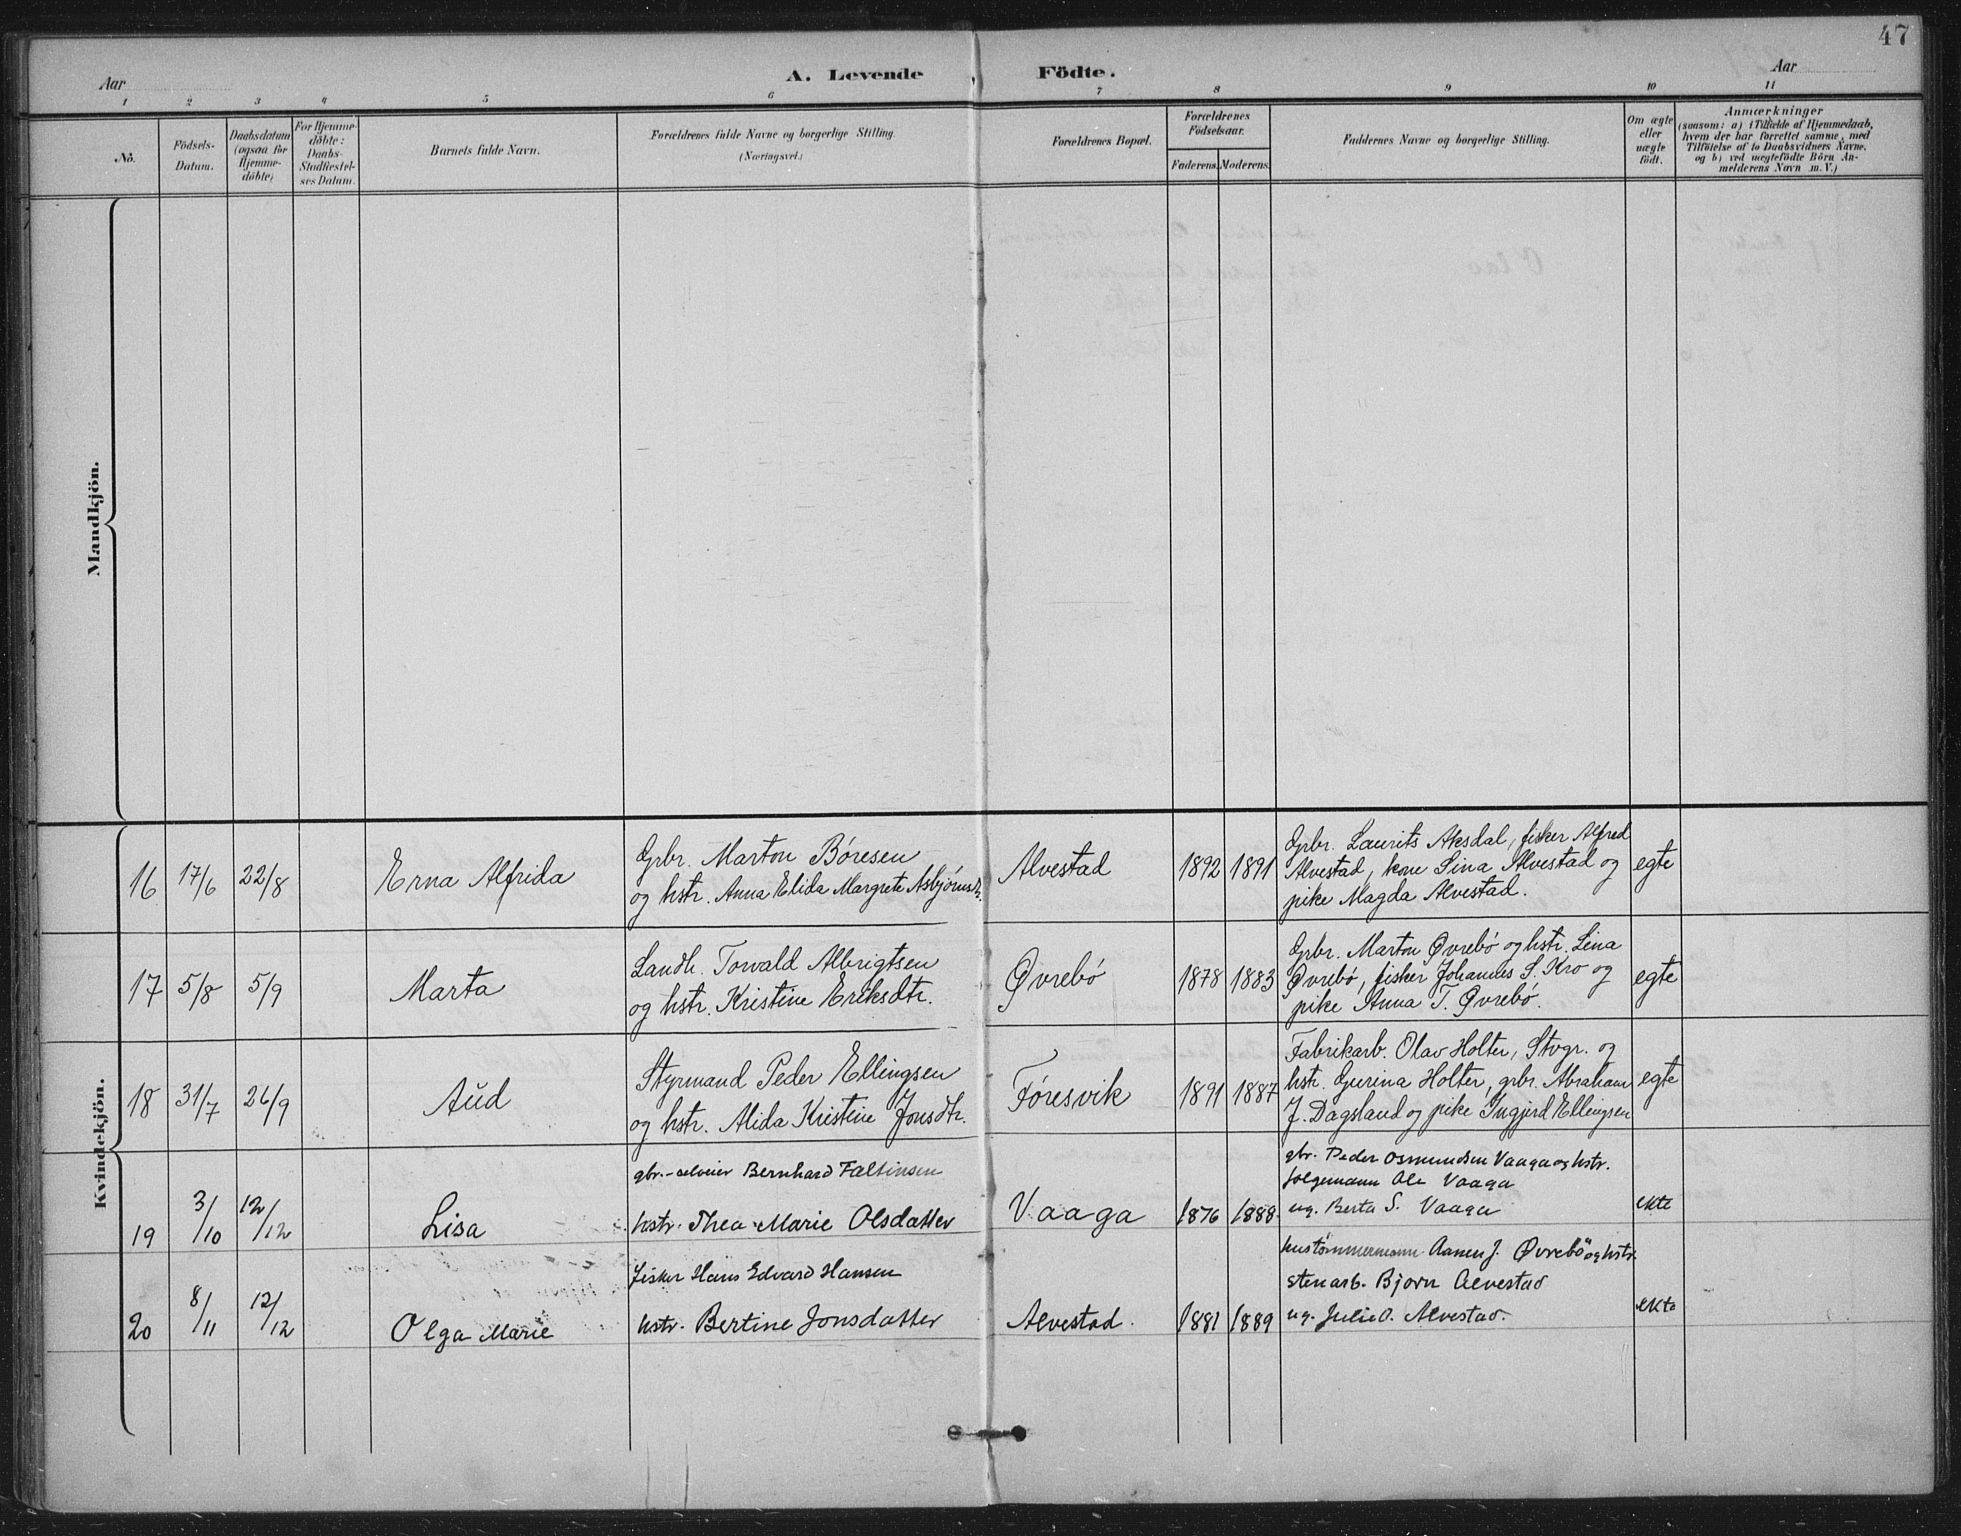 47
Aar
A. Levende Födte.
Aar
1 2 3 4 5 6 7 8 9 10 11
No.
Födsels-
Datum.
Daabsdatum
(ogsaa for
Hjemme-
döbte)
For Hjemme-
döbte:
Daabs-
Stadfæstel-
ses Datum.
Barnets fulde Navn.
Forældrenes fulde Navne og borgerlige Stilling.
(Næringsvei.)
Forældrenes Bopæl.
Forældrenes
Födselsaar.
Faderens. Moderens.
Faddernes Navne og borgerlige Stilling.
Om ægte
eller
uægte
født.
Anmærkninger
(saasom: a) i Tilfælde af Hjemmedaab,
hvem der har forrettet samme, med
Tilföielse af to Daabsvidners Navne.
og b) ved uægtefödte Börn An-
melderens Navn m. V.)
Mandkjön.
Kvindekjön.
16 17/6 22/8
Erna Alfrida
Grbr. Marton Børesen
og hstr. Anna Elida Margrete Asbjørnsdt.
Alvestad
1892 1891
Grbr. Laurits Aksdal, fisker Alfred
Alvestad, kone Lina Alvestad og
pike Magda Alvestad.
egte
17 5/8 5/9
Marta
Landh. Torvald Albrigtsen
og hstr. Kristine Eriksdtr.
Øvrebö
1878 1883
Grbr. Marton Øvrebö og hstr. Lina
Øvrebö, fisker Johannes S. Kro og
pike Anna T. Øvrebö.
egte
18 31/7 26/9
Aud
Styrmand Peder Ellingsen
og hstr. Alida Kristine Jonsdtr.
Føresvik
1891 1887
Fabrikarb. Olav Holter, Stvgr. og
hstr. Gurina Holter, grbr. Abraham
J. Dagsland og pike Ingjerd Ellingsen
egte
19 3/10 12/12
Lisa
gbr.-selveier Bernhard Faltinsen
hstr. Thea Marie Olsdatter
Vaaga
1876 1888
gbr. Peder Osmundsen Vaaga og hstr.
følgemann Ole Vaaga
ug. Berta S. Vaaga
ekte
20 8/11 12/12
Olga Marie
fisker Hans Edvard Hansen
hstr. Bertine Jonsdatter
Alvestad.
1881 1889
hustømmermann Aanen J. Øvrebö og hstr.
stenarb. Bjorn Alvestad
ug. Julie O. Alvestad.
ekte